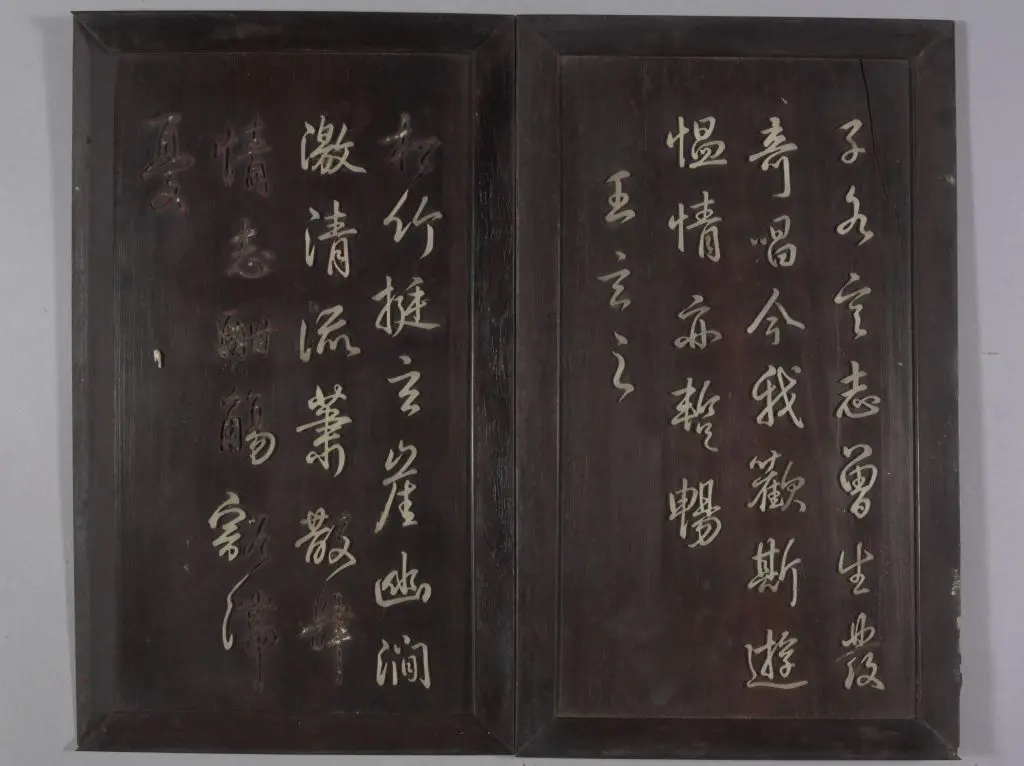 子各言志曾生發
奇唱今我歡斯遊
慍情亦暫暢
王玄之
松竹挺玄崖幽澗
激清流蕭散肆
情志酣觴豁滯
憂